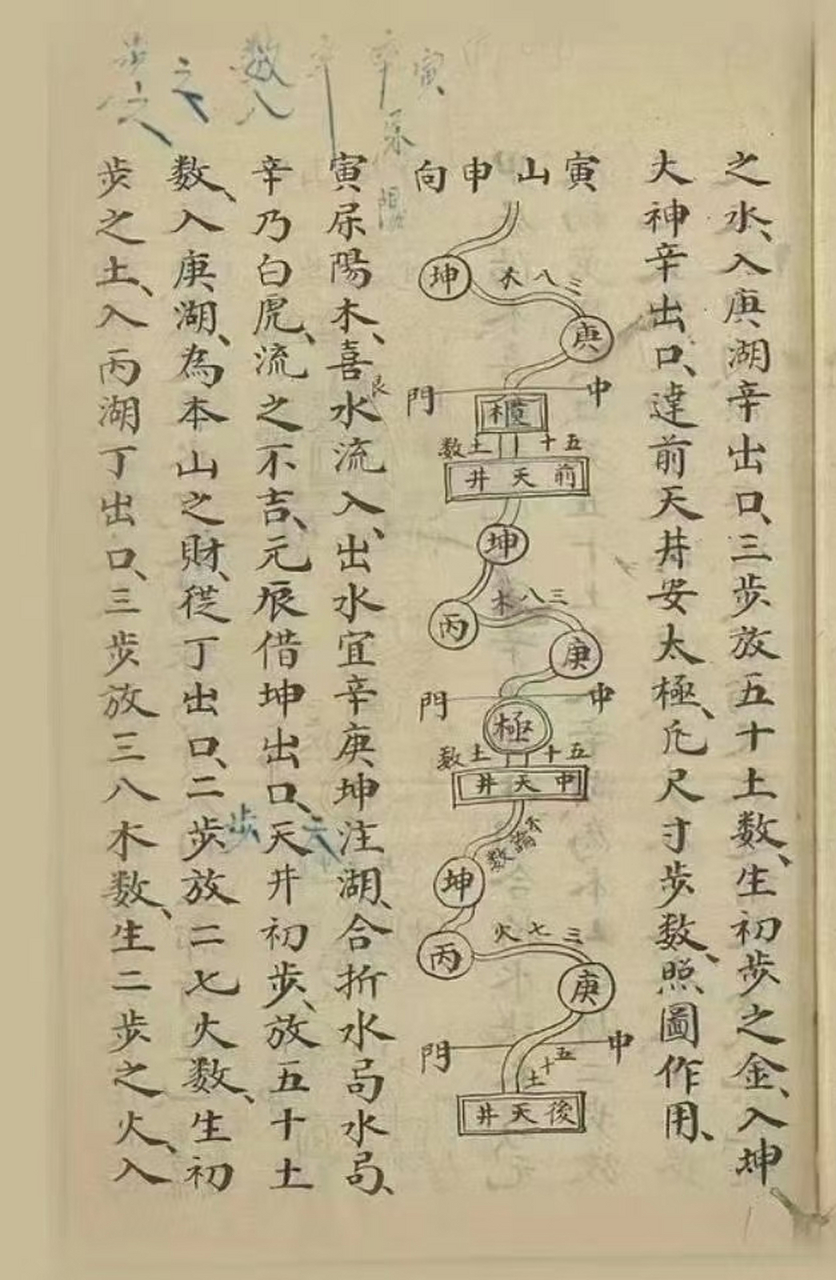 之水、入庚湖辛出口、三步放五十土數、生初步之金、入坤
大神辛出口、達前天井安太極、凡尺寸步數、照圖作用、
寅山申向
坤
三八木
庚
中門
五十土数
前天井
坤
三八木
丙
庚
中門
極
五十土数
中天井
坤
三七火
丙
庚
中門
五十土
後天井
寅尿陽木、喜水流入、出水宜辛庚坤注湖、合折水局水局、
辛乃白虎、流之不吉、元辰借坤出口、天井初步、放五十土
数、入庚湖、為本山之財、從丁出口、二步放二七火数、生初
步之土、入丙湖丁出口、三步放三八木数、生二步之火、入
寅
辛
尿
陽
数入
之
步之
艮
步